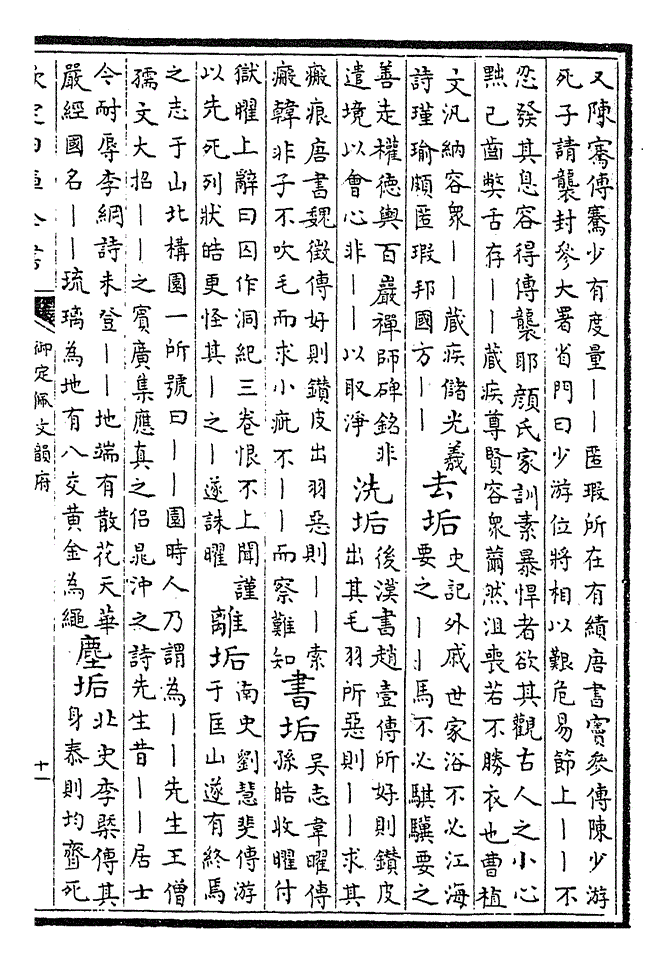 又陳騫傳騫少有度量——匿瑕所在有績唐書竇參傳陳少游
死子請襲封參大署省門曰少游位將相以艱危易節上——不
忍發其息容得傳襲耶顏氏家訓素暴悍者欲其觀古人之小心
黜己齒弊舌存——蔵疾尊賢容衆薾然沮喪若不勝衣也曹植
文汎納容衆——蔵疾儲光羲
詩瑾瑜頗匿瑕邦國方——
去垢
史記外戚世家浴不必江海
要之——馬不必騏驥要之
善走權德輿百巖禪師碑銘非
遣境以會心非——以取淨
洗垢
後漢書趙壹傳所好則鑚皮
出其毛羽所惡則——求其
瘢痕唐書魏徵傳好則鑚皮出羽惡則——索
瘢韓非子不吹毛而求小疵不——而察難知
書垢
吳志韋曜傳
孫皓收曜付
獄曜上辭曰囚作洞紀三卷恨不上聞謹
以先死列狀皓更怪其—之—遂誅曜
離垢
南史劉慧斐傳游
于匡山遂有終焉
之志于山北構園一所號曰——園時人乃謂為——先生王僧
孺文大招——之賓廣集應真之侶晁沖之詩先生昔——居士
今耐辱李綱詩未登——地端有散花天華
嚴經國名——琉璃為地有八交黄金為繩
塵垢
北史李㮚傳其
身泰則均齊死
欽定四庫全書
御定佩文韻府
十一